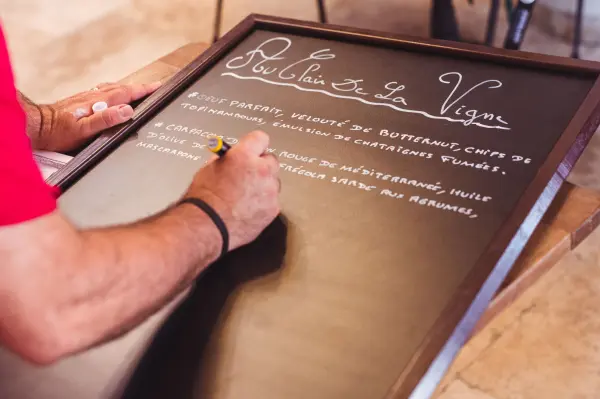 Au Clair De La Vigne
* Œuf parfait, velouté de butternut, chips de
topinambours, émulsion de chataîgnes fumées.
* Carpaccio de rouge de méditerranée, huile
d'olive de fregola sarde aux agrumes,
mascarpone